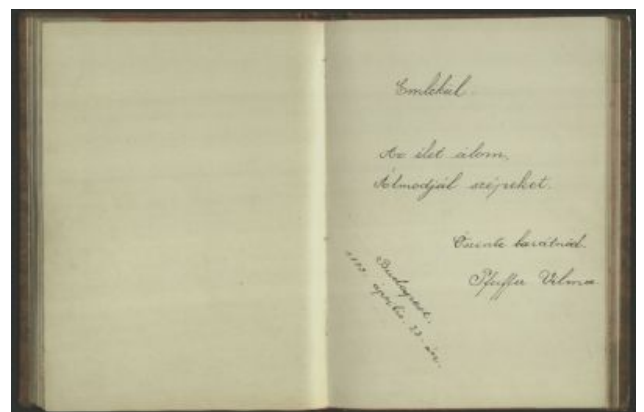 Emlékül.
Az élet álom,
Álmodjál szépeket.
Őszinte barátnőd
Pfeiffer Vilma
Budapest.
április 23-án.